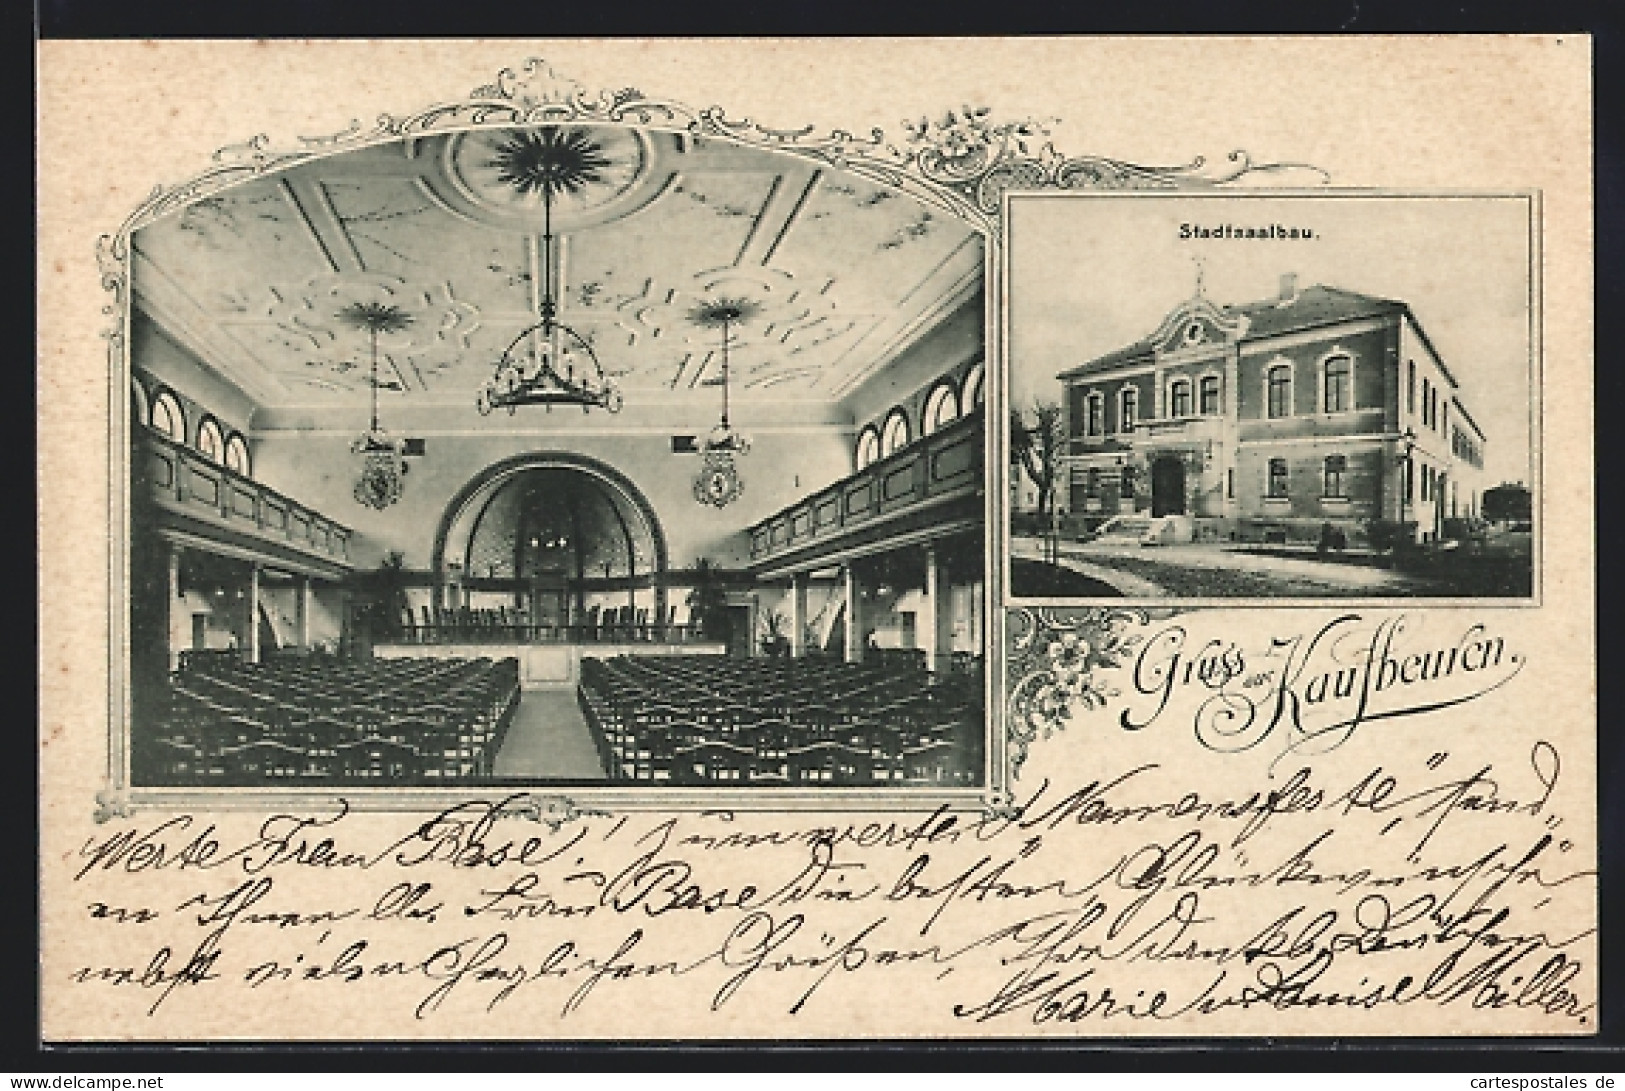 Stadtsaalbau.
Gruss aus Kaufbeuren.
Werte Frau Base! Zum werten Namensfeste, send-
en Ihnen, Frau Base die besten Glückwünsche
nebst vielen herzlichen Grüßen, Ihre dankb.
Marie u. Louise Miller.
cartespostales de